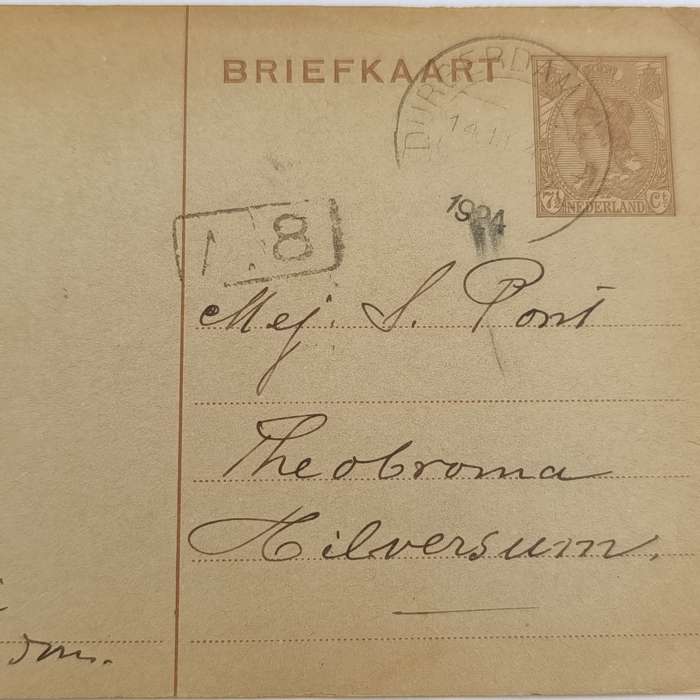 BRIEFKAART
DURGERDAM
14.11
1924
7½ NEDERLAND Ct
1.8
Mej. S. Pont
Theobroma
Hilversum.
dm.